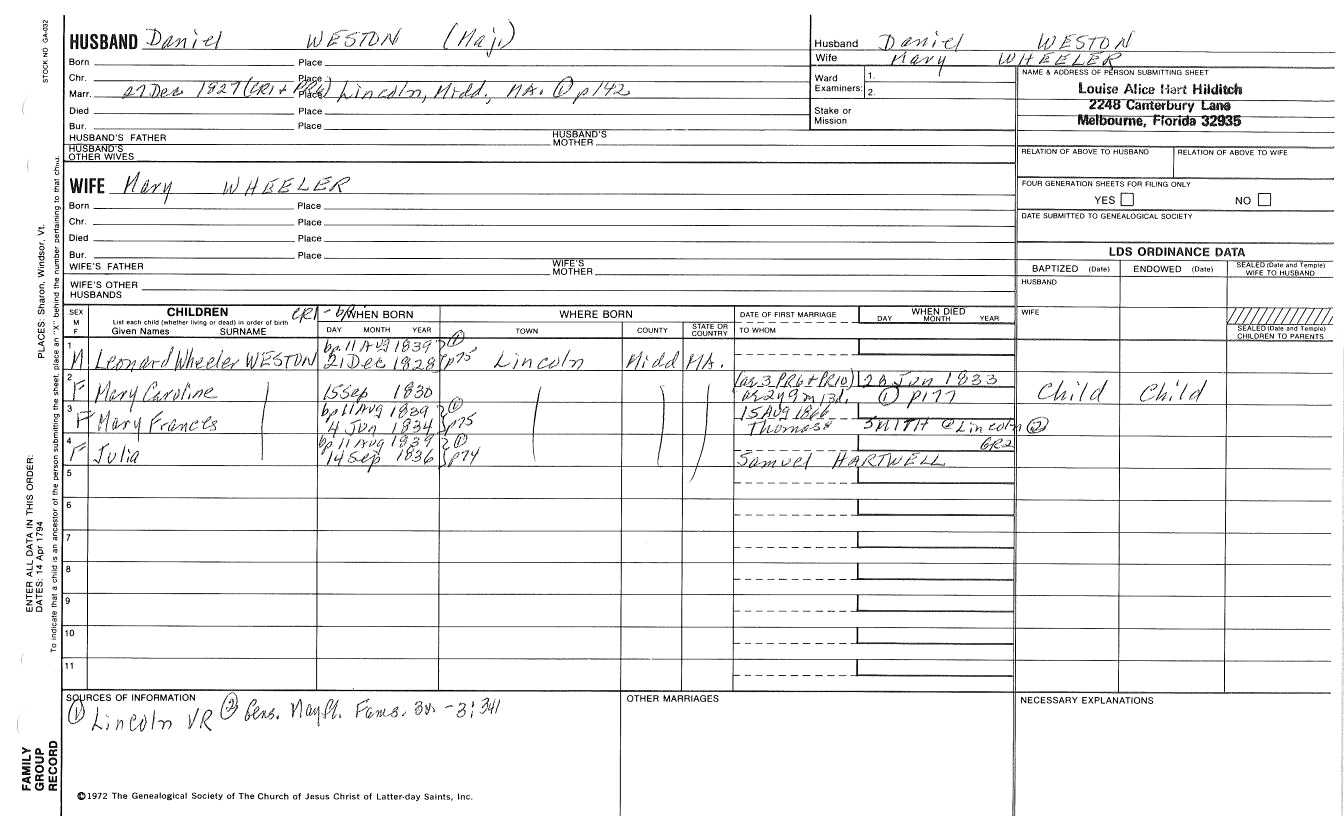 STOCK NO GA-032
HUSBAND Daniel WESTON (Maj.)
Born Place
Chr. Place
Marr. 27 Dec 1827 (CR1 + PR6) Place Lincoln, Midd., MA. ① p142
Died Place
Bur. Place
HUSBAND'S FATHER HUSBAND'S MOTHER
HUSBAND'S OTHER WIVES
Husband Daniel WESTON
Wife Mary WHEELER
Ward Examiners: 1. 2.
Stake or Mission
NAME & ADDRESS OF PERSON SUBMITTING SHEET
Louise Alice Hart Hilditch
2248 Canterbury Lane
Melbourne, Florida 32935
RELATION OF ABOVE TO HUSBAND RELATION OF ABOVE TO WIFE
FOUR GENERATION SHEETS FOR FILING ONLY
YES NO
DATE SUBMITTED TO GENEALOGICAL SOCIETY
WIFE Mary WHEELER
Born Place
Chr. Place
Died Place
Bur. Place
WIFE'S FATHER WIFE'S MOTHER
WIFE'S OTHER HUSBANDS
LDS ORDINANCE DATA
BAPTIZED (Date) ENDOWED (Date) SEALED (Date and Temple) WIFE TO HUSBAND
HUSBAND
WIFE
SEALED (Date and Temple) CHILDREN TO PARENTS
SEX M F
CHILDREN CR1 - bp
List each child (whether living or dead) in order of birth
Given Names SURNAME
WHEN BORN
DAY MONTH YEAR
WHERE BORN
TOWN COUNTY STATE OR COUNTRY
DATE OF FIRST MARRIAGE
TO WHOM
WHEN DIED
DAY MONTH YEAR
1 bp. 11 Aug 1839 ①
M Leonard Wheeler WESTON 21 Dec 1828 p75 Lincoln Midd MA.
2 (ae 3 PR6 + PR10) 28 Jun 1833
F Mary Caroline 15 Sep 1830 ae 2y 9m 13d. ① p177 Child Child
3 bp 11 Aug 1839 ① 15 Aug 1866
F Mary Frances 4 Jun 1834 p75 Thomas SMITH @ Lincoln ②
4 bp 11 Aug 1839 ① GR2
F Julia 14 Sep 1836 p74 Samuel HARTWELL
5
6
7
8
9
10
11
SOURCES OF INFORMATION
① Lincoln VR ② Gens. Mayfl. Fams. 3v. - 3:341
OTHER MARRIAGES
NECESSARY EXPLANATIONS
©1972 The Genealogical Society of The Church of Jesus Christ of Latter-day Saints, Inc.
FAMILY GROUP RECORD
ENTER ALL DATA IN THIS ORDER:
DATES: 14 Apr 1794
PLACES: Sharon, Windsor, Vt.
To indicate that a child is an ancestor of the person submitting the sheet, place an "X" behind the number pertaining to that child.